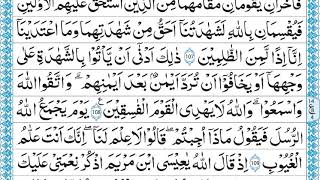 فَاٰخَرٰنِ يَقُوْمٰنِ مَقَامَهُمَا مِنَ الَّذِيْنَ اسْتَحَقَّ عَلَيْهِمُ الْاَوْلَيٰنِ
فَيُقْسِمٰنِ بِاللّٰهِ لَشَهَادَتُنَاۤ اَحَقُّ مِنْ شَهَادَتِهِمَا وَمَا اعْتَدَيْنَاۤ
اِنَّاۤ اِذًا لَّمِنَ الظّٰلِمِيْنَ ۱۰۷ ذٰلِكَ اَدْنٰۤى اَنْ يَّاْتُوْا بِالشَّهَادَةِ عَلٰى
وَجْهِهَاۤ اَوْ يَخَافُوْۤا اَنْ تُرَدَّ اَيْمَانٌۢ بَعْدَ اَيْمَانِهِمْ ؕ وَاتَّقُوا اللّٰهَ
وَاسْمَعُوْا ؕ وَاللّٰهُ لَا يَهْدِى الْقَوْمَ الْفٰسِقِيْنَ ۱۰۸ يَوْمَ يَجْمَعُ اللّٰهُ
الرُّسُلَ فَيَقُوْلُ مَاذَاۤ اُجِبْتُمْ ؕ قَالُوْا لَا عِلْمَ لَنَا ؕ اِنَّكَ اَنْتَ عَلَّامُ
الْغُيُوْبِ ۱۰۹ اِذْ قَالَ اللّٰهُ يٰعِيْسَى ابْنَ مَرْيَمَ اذْكُرْ نِعْمَتِىْ عَلَيْكَ